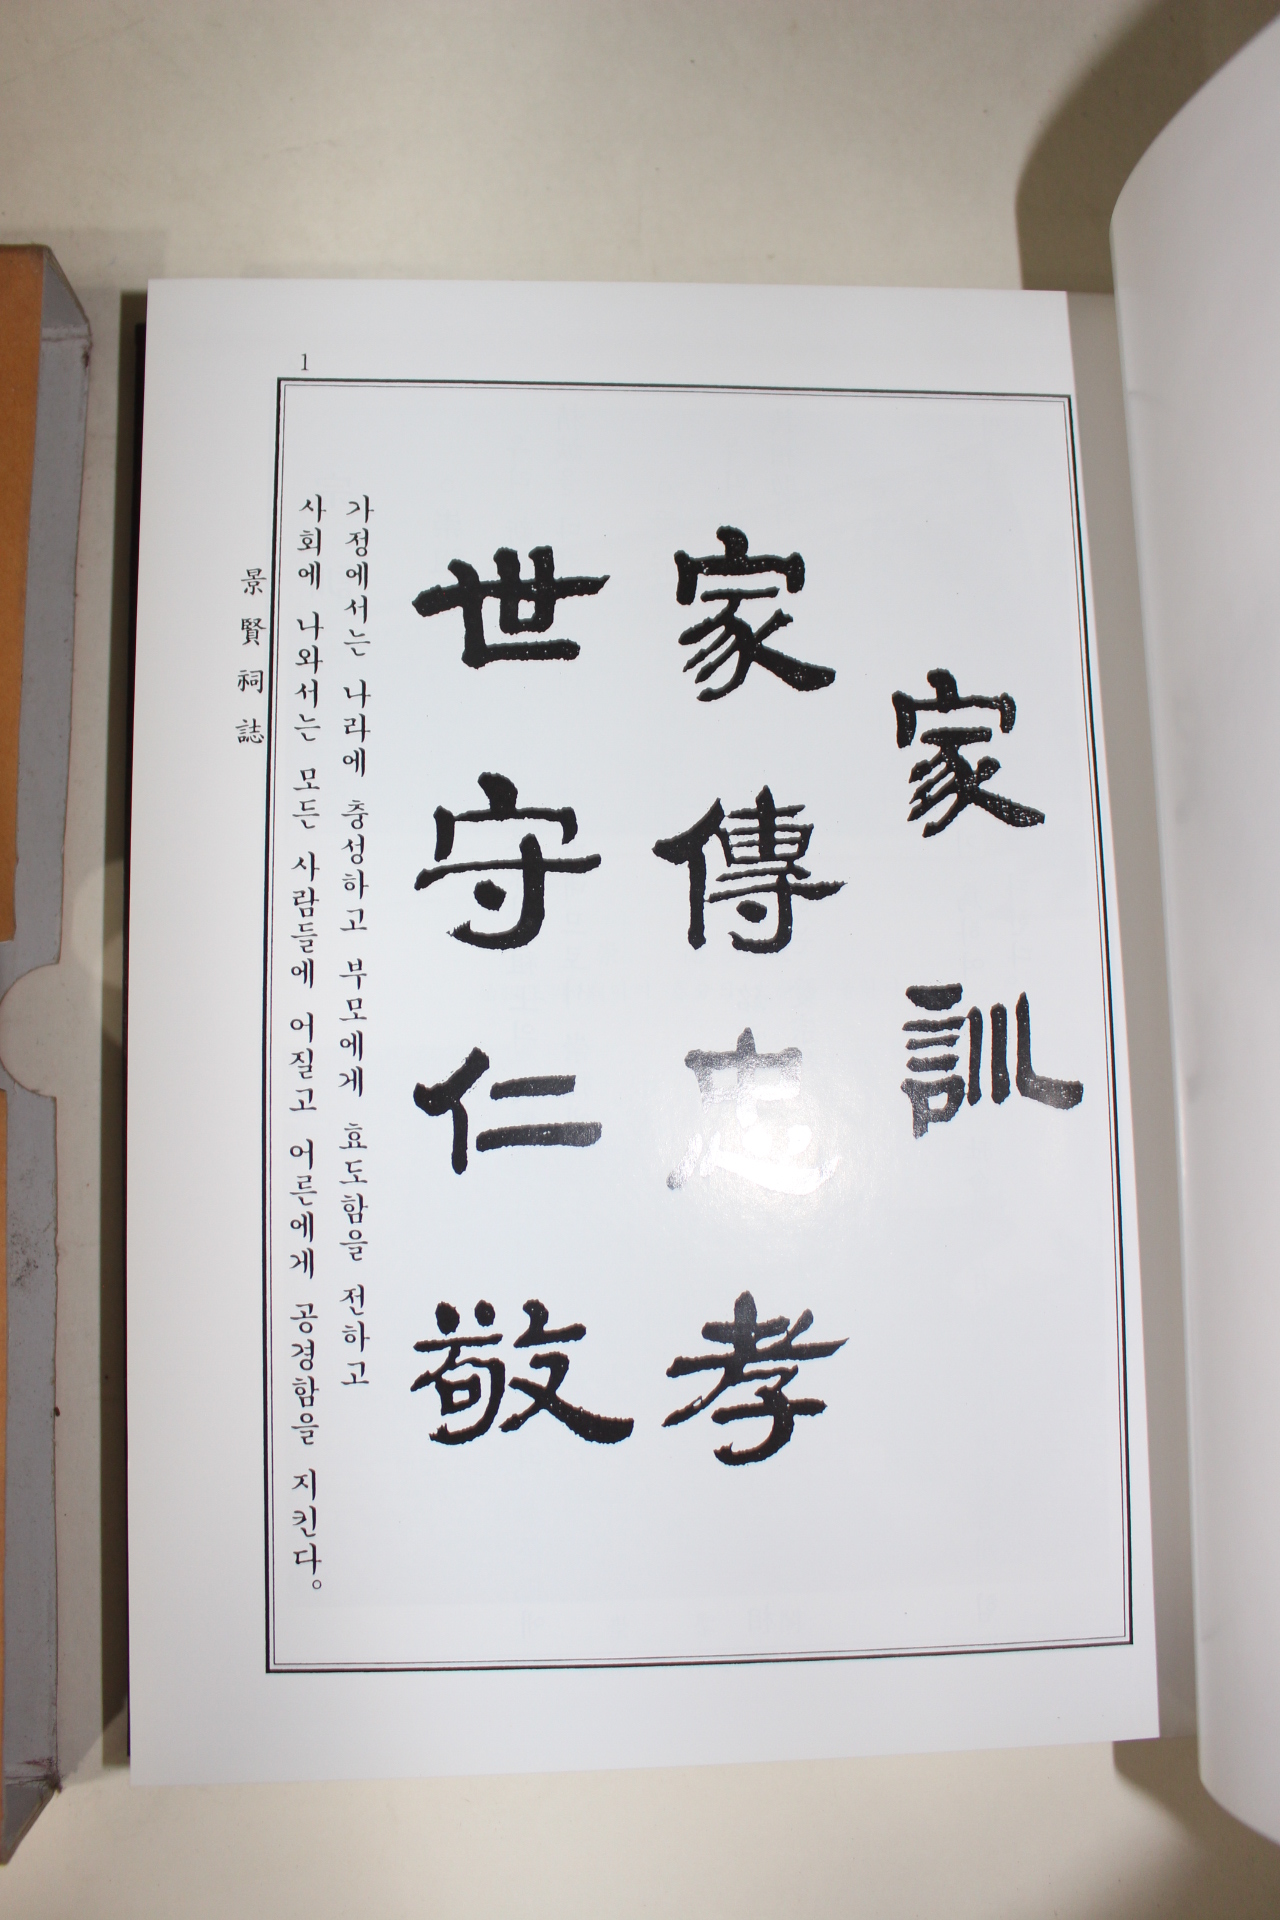 家訓
家傳忠孝
世守仁敬
가정에서는 나라에 충성하고 부모에게 효도함을 전하고
사회에 나와서는 모든 사람들에 어질고 어른에게 공경함을 지킨다。
景賢祠誌
1